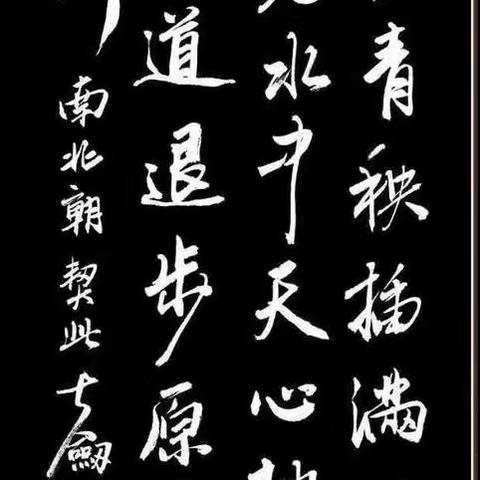 青秧插满
水中天心
道退步原
南北朝契此士劍